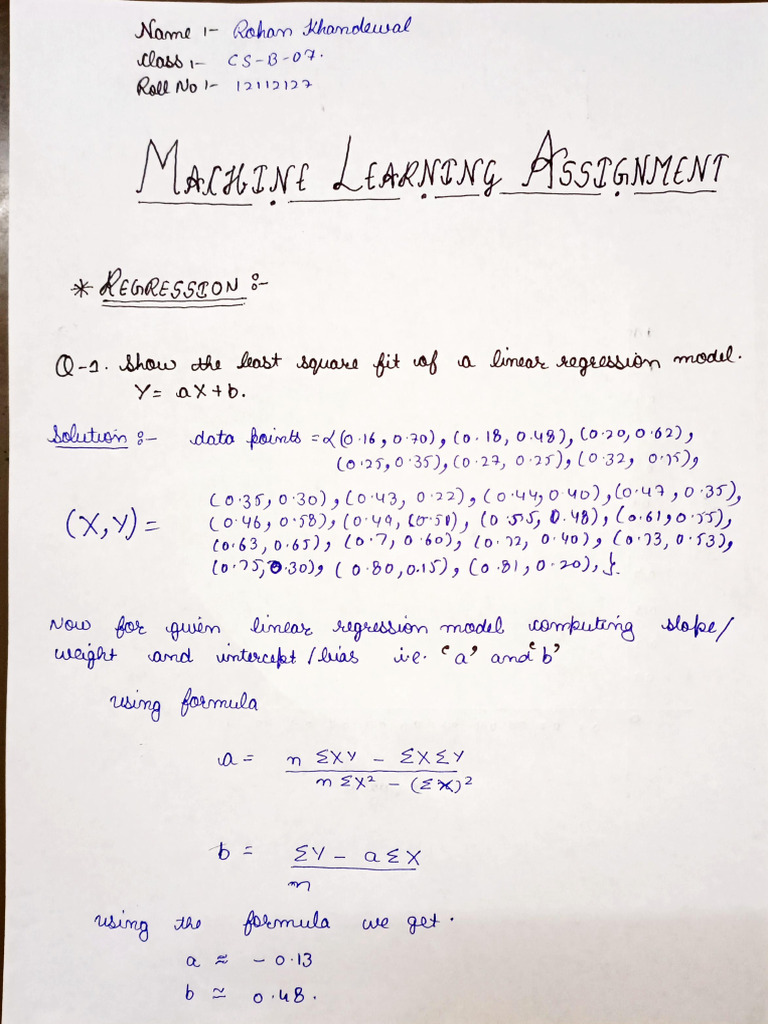 Name :- Rohan Khandewal
Class :- CS-B-07.
Roll No :- 12112127
MACHINE LEARNING ASSIGNMENT
* REGRESSION :-
Q-1. Show the least square fit of a linear regression model.
Y = aX + b.
Solution :- data points = {(0.16, 0.70), (0.18, 0.48), (0.20, 0.62),
(0.25, 0.35), (0.27, 0.25), (0.32, 0.15),
(0.35, 0.30), (0.43, 0.22), (0.44, 0.40), (0.47, 0.35),
(X, Y) = (0.46, 0.58), (0.49, (0.50), (0.55, 0.48), (0.61, 0.55),
(0.63, 0.65), (0.7, 0.60), (0.72, 0.40), (0.73, 0.53),
(0.75, 0.30), (0.80, 0.15), (0.81, 0.20), }.
Now for given linear regression model computing slope/
weight and intercept/bias i.e. 'a' and 'b'
using formula
a = n ΣXY - ΣXΣY
n ΣX² - (ΣX)²
b = ΣY - aΣX
n
using the formula we get.
a ≈ - 0.13
b ≃ 0.48.